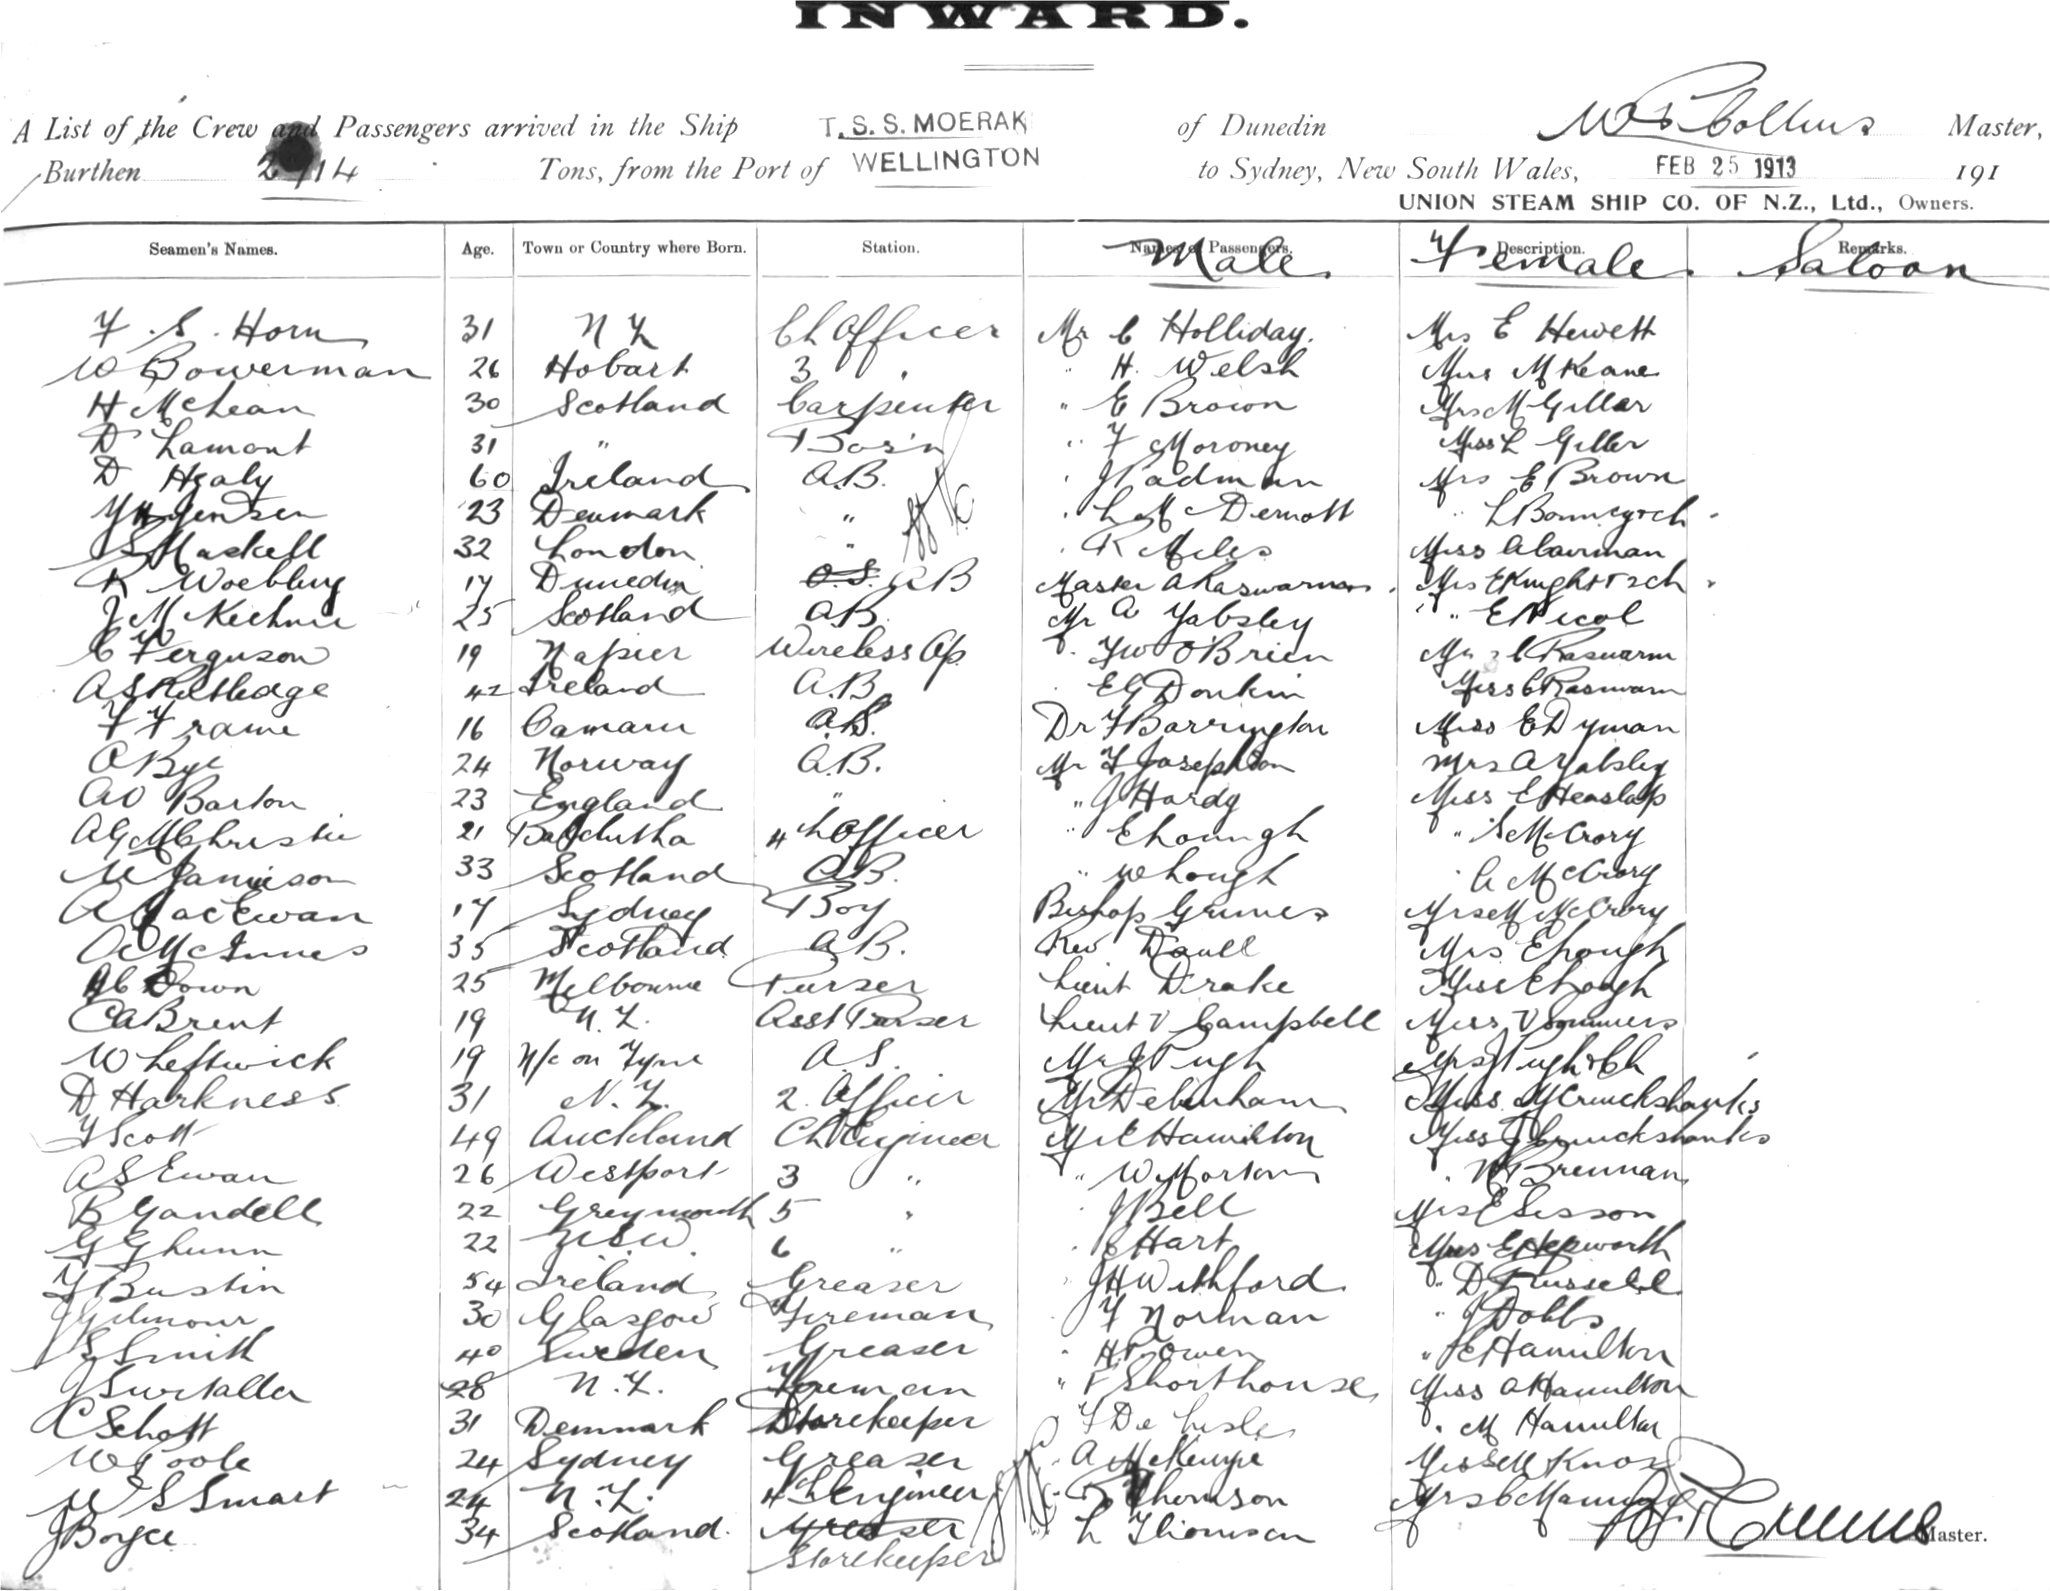 INWARD.
A List of the Crew and Passengers arrived in the Ship T.S.S. MOERAK of Dunedin Master,
Burthen 2714 Tons, from the Port of WELLINGTON to Sydney, New South Wales, FEB 25 1913 191
UNION STEAM SHIP CO. OF N.Z., Ltd., Owners.
Seamen's Names. Age. Town or Country where Born. Station. Names of Passengers. Description. Remarks.
Male Female Saloon
F. S. Horn 31 N Z Ch Officer Mr C Holliday. Mrs E Hewett
W Bowerman 26 Hobart 3 " " H. Welsh Miss M Keane
H McLean 30 Scotland Carpenter " E Brown Mrs M Gillar
D Lamont 31 " Bos'n " F Moroney Miss L Giller
D Healy 60 Ireland A.B. " J Padman Mrs E Brown
Jensen 23 Denmark " " L McDermott "
S Haskell 32 London " " R Miles Miss
R Woebling 17 Dunedin O.S. AB Master A Raswarm Mrs E Knight & 2 ch
J McKechnie 25 Scotland AB. Mr A Yabsley " E Nicol
C W Ferguson 19 Napier Wireless Op. " F W O'Brien C Raswarm
A S Rutledge 42 Ireland A.B. " E G Donkin Miss C Raswarm
F Frame 16 Oamaru Dr F Barrington Miss E Dyman
A Bye 24 Norway A.B. Mr F Josephson Mrs A Yabsley
A W Barton 23 England " " J Hardy Miss E Henslop
A G McChristie 21 Balclutha 4th Officer " E Lough " S McCrory
W Jamieson 33 Scotland A.B. " W Lough " A McCrory
A MacEwan 17 Sydney Boy Bishop Grimes Mrs M McCrory
A McInnes 35 Scotland A.B. Rev Daull Mrs E Lough
Down 25 Melbourne Purser Lieut Drake Miss E Lough
C A Brent 19 N.Z. Asst Purser Lieut V Campbell Miss V Sommers
W Leftwick 19 N/c on Tyne Mr J Pugh Mrs J Pugh & Ch
D Harkness 31 N.Z. 2. Officer Mr Debenham Miss M Cruickshanks
F Scott 49 Auckland Ch Engineer Mr E Hamilton Miss J Cruickshanks
A S Ewan 26 Westport 3 " " W Morton " N Brennan
B Yandell 22 Greymouth 5 " " J Bell Mrs E Sisson
G G Lunn 22 N.S.W. 6 " " E Hart E Hepworth
F Bustin 54 Ireland Greaser " J H Withford " D Russell
J Gilmour 30 Glasgow Fireman " F Norman " J Dobbs
S Smith 40 Sweden Greaser " H P Owen " E Hamilton
J 28 N.Z. Fireman " F Shorthouse Miss A Hamilton
C Schott 31 Denmark Storekeeper " F De Lisle " M Hamilton
W Toole 24 Sydney Greaser " A McKenzie Miss M Knox
W S Smart 24 N.Z. 4th Engineer Thomson Mrs C Manning
J Boyce 34 Scotland. Greaser " L Thomson Master.
Storekeeper